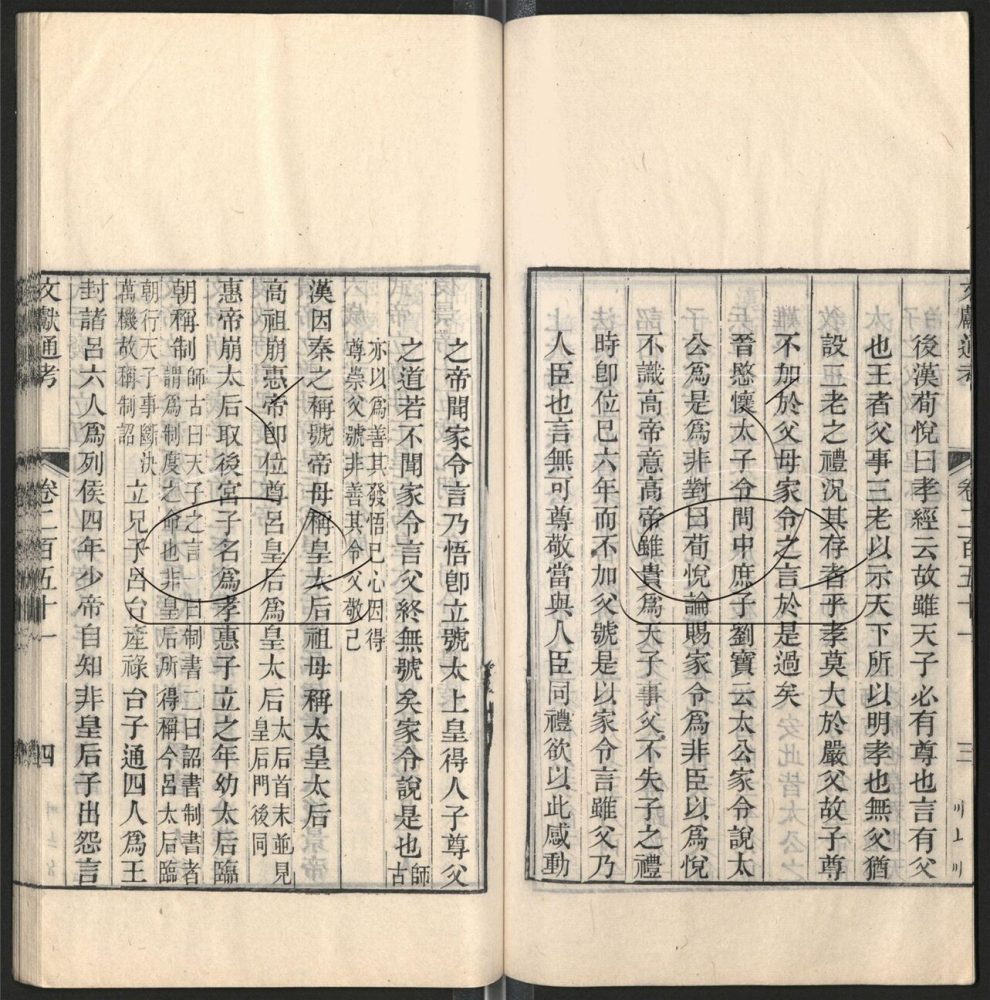 文獻通考 卷二百五十一 三
後漢荀悅曰孝經云故雖天子必有尊也言有父
也王者父事三老以示天下所以明孝也無父猶
設三老之禮況其存者乎孝莫大於嚴父故子尊
不加於父母家令之言於是過矣
晉愍懷太子令問中庶子劉寶云太公家令說太
公爲是爲非對曰荀悅論賜家令爲非臣以爲悅
不識高帝意高帝雖貴爲天子事父不失子之禮
時卽位已六年而不加父號是以家令言雖父乃
人臣也言無可尊敬當與人臣同禮欲以此感動
之帝聞家令言乃悟卽立號太上皇得人子尊父
之道若不聞家令言父終無號矣家令說是也師古
亦以爲善其發悟己心因得
尊崇父號非善其令父敬己
漢因秦之稱號帝母稱皇太后祖母稱太皇太后
高祖崩惠帝卽位尊呂皇后爲皇太后太后首末並見
皇后門後同
惠帝崩太后取後宮子名爲孝惠子立之年幼太后臨
朝稱制師古曰天子之言一曰制書二曰詔書制書者
謂爲制度之命也非皇后所得稱今呂太后臨
朝行天子事斷決
萬機故稱制詔
立兄子呂台產祿台子通四人爲王
封諸呂六人爲列侯四年少帝自知非皇后子出怨言
文獻通考 卷二百五十一 四